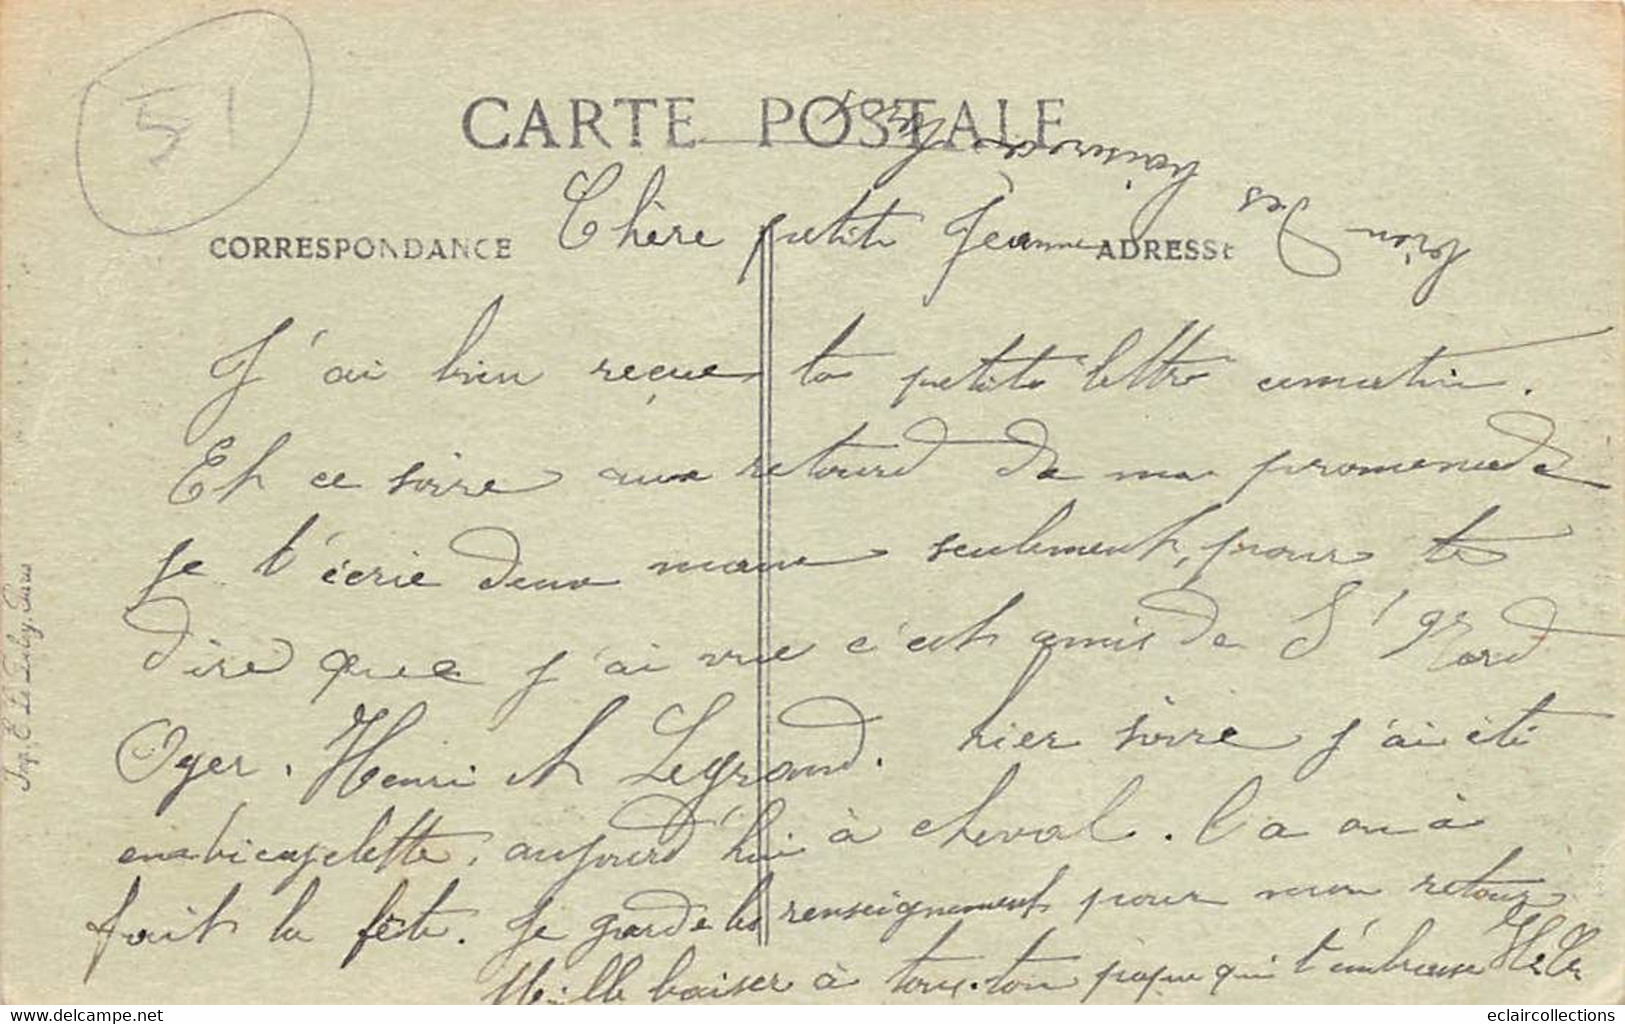 51
CARTE POSTALE
CORRESPONDANCE
ADRESSE
Chère petite Jeanne
J'ai bien reçue ta petite lettre cematin.
Et ce soire aux retourd de ma promenade
je t'écrie deux maux seulement, pour te
dire que j'ai vue c'est amis de St Gd
Oger. Henri et Legrand. hier soire j'ai été
ena bicyclette, aujourd'hui à cheval. la on à
fait la fête. Je garde les renseignement pour mon retour
Mille baiser à tous. ton papa qui t'embrasse
Des baisers
Imp. E. Le Deley, Paris
delcampe.net
eclaircollections